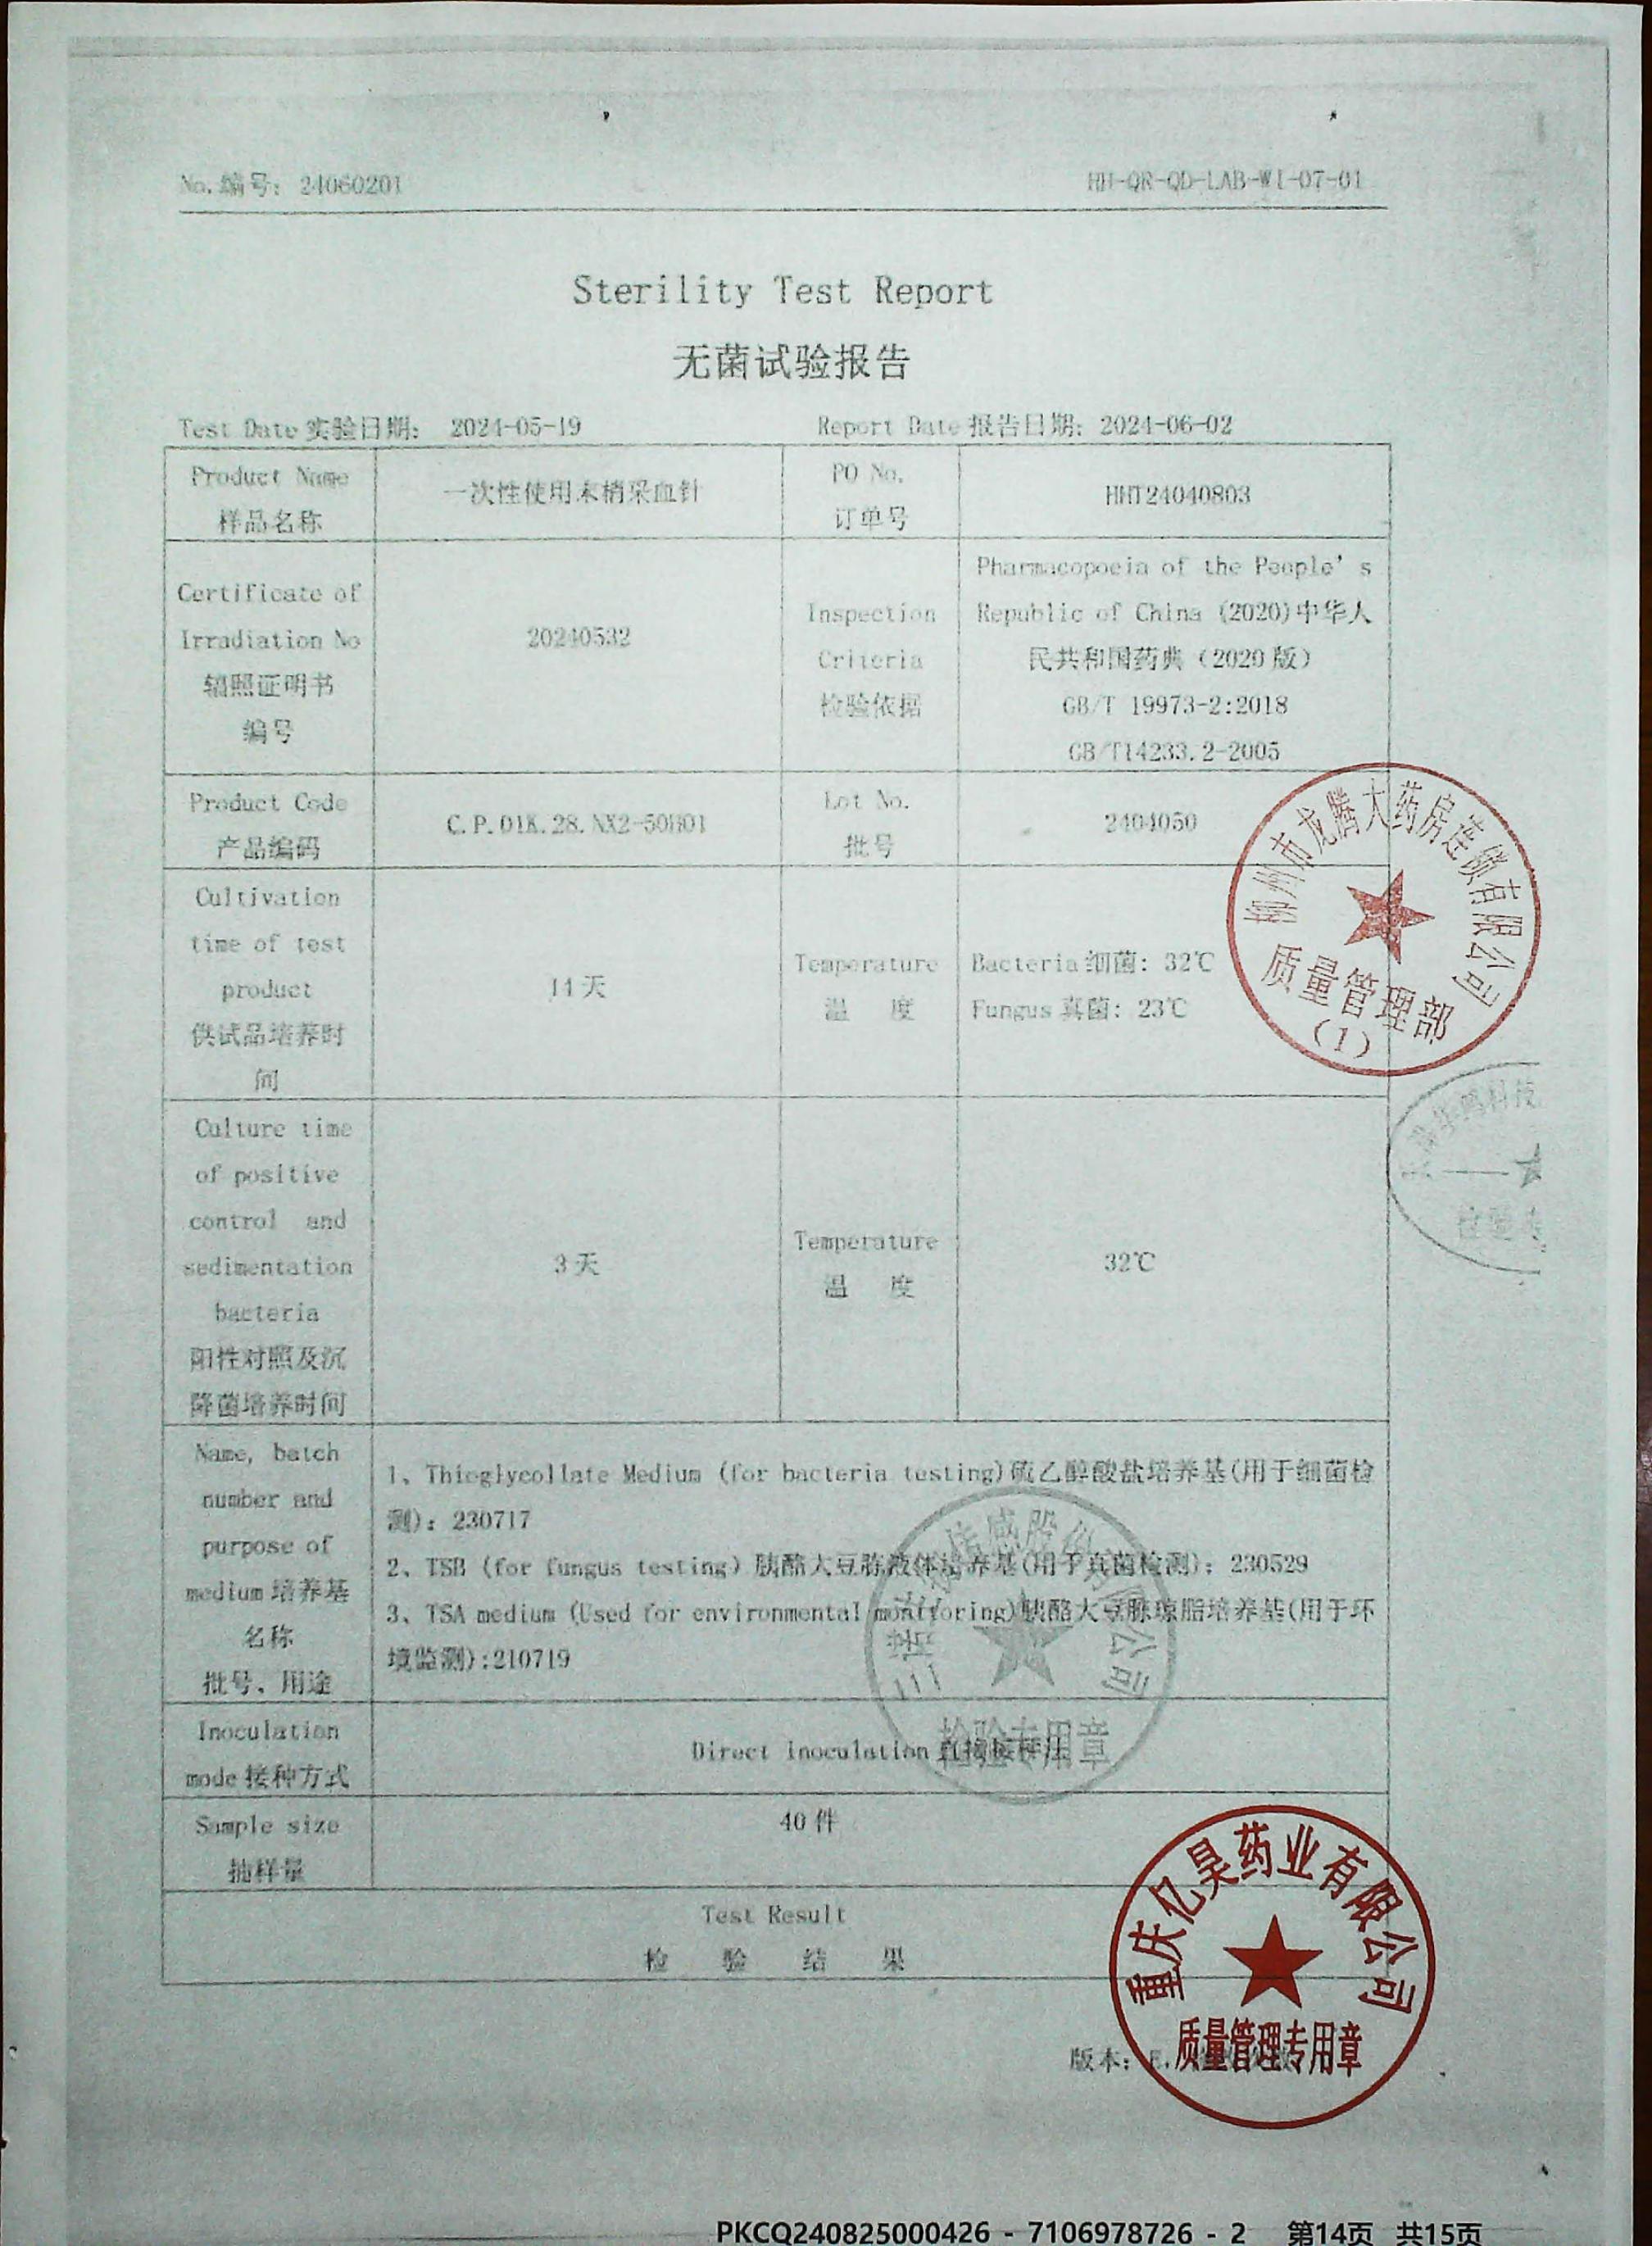 No.编号: 24060201
HH-QR-QD-LAB-WI-07-01
Sterility Test Report
无菌试验报告
Test Date 实验日期: 2024-05-19
Report Date 报告日期: 2024-06-02
Product Name
样品名称
一次性使用末梢采血针
PO No.
订单号
HHT24040803
Certificate of
Irradiation No
辐照证明书
编号
20240532
Inspection
Criteria
检验依据
Pharmacopoeia of the People's
Republic of China (2020)中华人
民共和国药典（2020 版）
GB/T 19973-2:2018
GB/T14233.2-2005
Product Code
产品编码
C.P.01K.28.NX2-50H01
Lot No.
批号
2404050
Cultivation
time of test
product
供试品培养时
间
14 天
Temperature
温 度
Bacteria 细菌: 32℃
Fungus 真菌: 23℃
柳州市龙腾大药房连锁有限公司
质量管理部
(1)
华鸥科技
检验
Culture time
of positive
control and
sedimentation
bacteria
阳性对照及沉
降菌培养时间
3 天
Temperature
温 度
32℃
Name, batch
number and
purpose of
medium 培养基
名称
批号、用途
1、Thioglycollate Medium (for bacteria testing)硫乙醇酸盐培养基(用于细菌检
测): 230717
2、TSB (for fungus testing) 胰酪大豆胨液体培养基(用于真菌检测): 230529
3、TSA medium (Used for environmental monitoring)胰酪大豆胨琼脂培养基(用于环
境监测):210719
传感股份有限公司
检验专用章
Inoculation
mode 接种方式
Direct inoculation 直接接种法
Sample size
抽样量
40 件
Test Result
检 验 结 果
重庆亿昊药业有限公司
质量管理专用章
版本: E.
PKCQ240825000426 - 7106978726 - 2 第14页 共15页